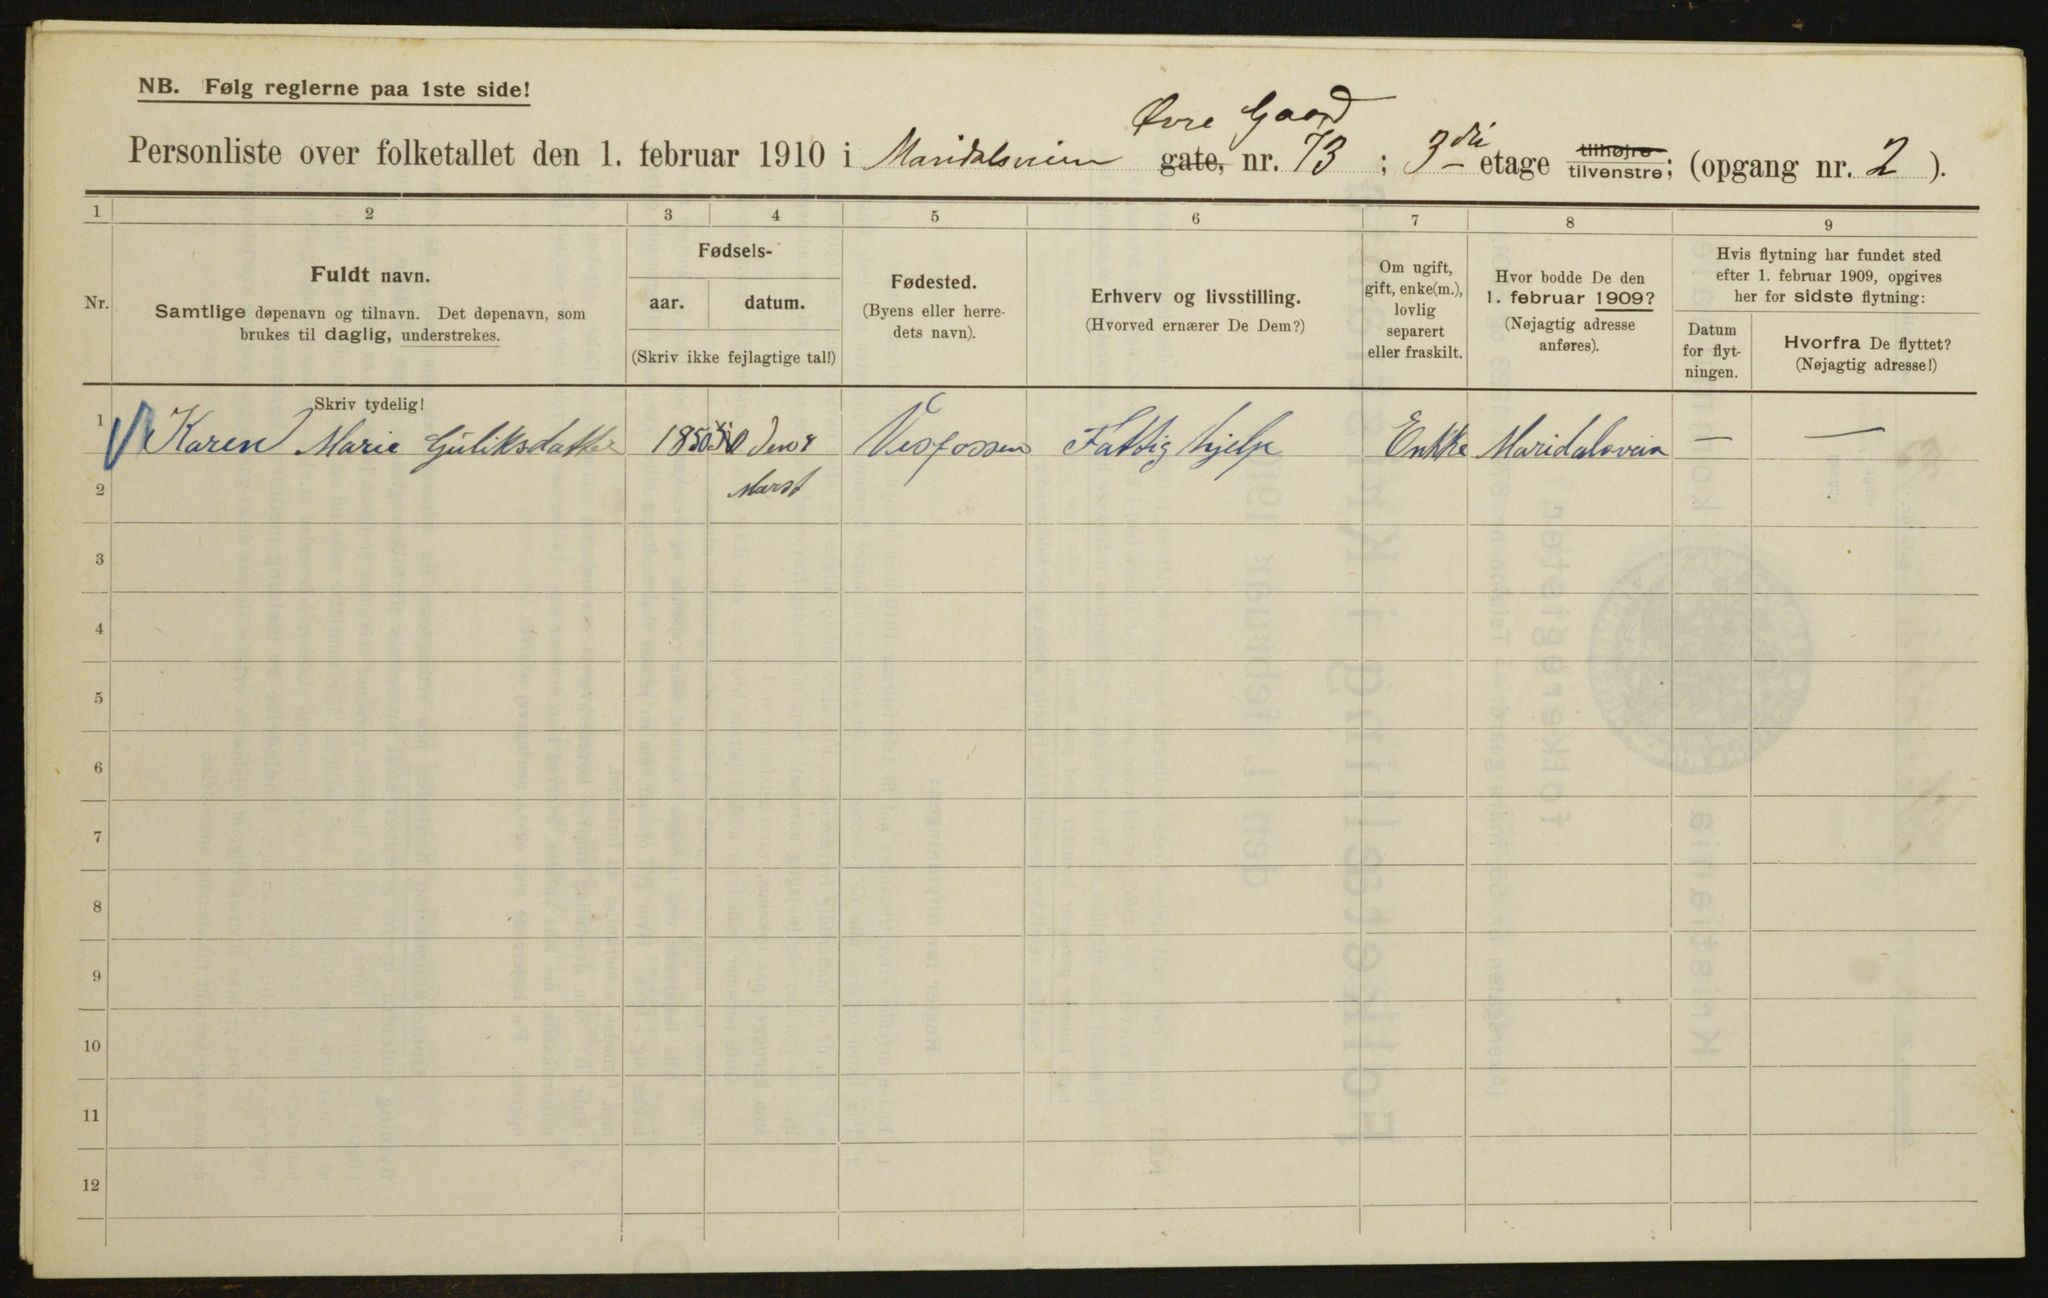 NB. Følg reglerne paa 1ste side!
Øvre Gaard
Personliste over folketallet den 1. februar 1910 i Maridalsveien gate, nr. 73 ; 3die etage tilhøjre tilvenstre; (opgang nr. 2 ).
1 2 3 4 5 6 7 8 9
Nr.
Fuldt navn.
Samtlige døpenavn og tilnavn. Det døpenavn, som
brukes til daglig, understrekes.
Fødsels-
aar. datum.
(Skriv ikke fejlagtige tal!)
Fødested.
(Byens eller herre-
dets navn).
Erhverv og livsstilling.
(Hvorved ernærer De Dem?)
Om ugift,
gift, enke(m.),
lovlig
separert
eller fraskilt.
Hvor bodde De den
1. februar 1909?
(Nøjagtig adresse
anføres).
Hvis flytning har fundet sted
efter 1. februar 1909, opgives
her for sidste flytning:
Datum
for flyt-
ningen.
Hvorfra De flyttet?
(Nøjagtig adresse!)
Skriv tydelig!
1 Karen Marie Guliksdatter 1850 den Vesfossen Fattig hjelp Enkke Maridalsvein — —
2 Marst
3
4
5
6
7
8
9
10
11
12